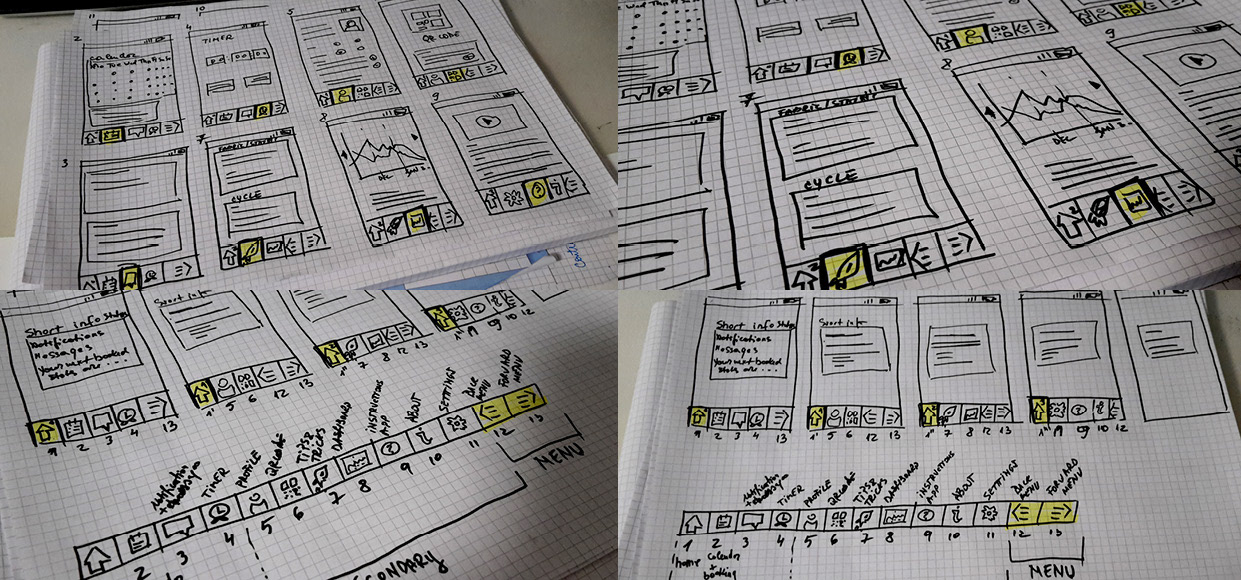 2
4
10
5
calender
Mo Tue Wed Thu Fr Sa Su
TIMER
QR CODE
3
7
8
9
CYCLE
DEC
JAN
7
8
9
CYCLE
DEC
JAN
Short info
Short info
Notifications
Messages
Your next booked
slots are ...
1 2 3 4 13
1' 5 6 12 13
1" 7 8 12 13
9 10 12
TIMER
PROFILE
QRCODE
TIPS &
TRICKS
DASHBOARD
INSTRUCTIONS
APP
ABOUT
SETTINGS
BACK
MENU
FORWARD
MENU
2 3 4 5 6 7 8 9 10 11 12 13
MENU
Short info
Notifications
Messages
Your next booked
slots are ...
Short info
1 2 3 4 13
1' 5 6 12 13
1" 7 8 12 13
10 12
TIMER
PROFILE
QRCODE
TIPS &
TRICKS
DASHBOARD
INSTRUCTIONS
APP
ABOUT
SETTINGS
BACK
MENU
FORWARD
MENU
1 2 3 4 5 6 7 8 9 10 11 12 13
home
Calendar
+
booking
MENU